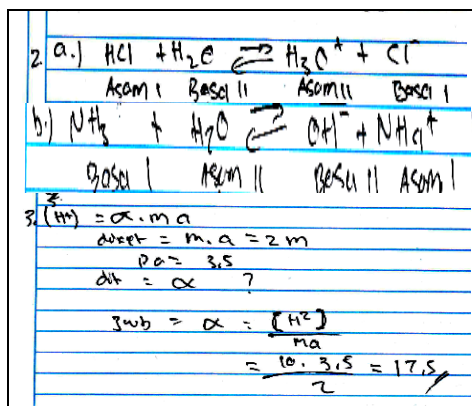 2 a.) HCl + H2O ⇌ H3O+ + Cl-
Asam I Basa II Asam II Basa I
b.) NH3 + H2O ⇌ OH- + NH4+
Basa I Asam II Basa II Asam I
3. (H+) = α . ma
= m.a = 2 m
Pa = 3,5
dit = α ?
Jwb = α = [H2]
ma
= 10 . 3,5 = 17,5
2